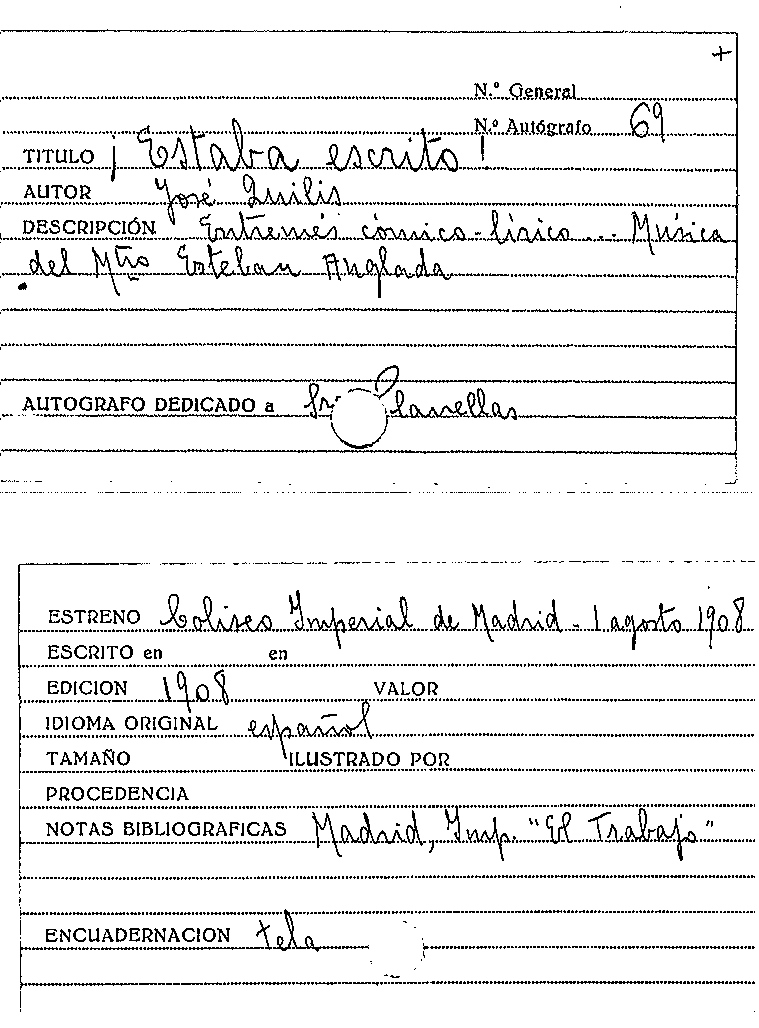 +
N.º General
N.º Autógrafo 69
TITULO ¡Estaba escrito!
AUTOR José Quilis
DESCRIPCIÓN Entremés cómico-lírico... Música
del Mtro Esteban Anglada
AUTOGRAFO DEDICADO a Sr.
ESTRENO Coliseo Imperial de Madrid - 1 agosto 1908
ESCRITO en en
EDICION 1908 VALOR
IDIOMA ORIGINAL español
TAMAÑO ILUSTRADO POR
PROCEDENCIA
NOTAS BIBLIOGRAFICAS Madrid, Imp. "El Trabajo"
ENCUADERNACION tela